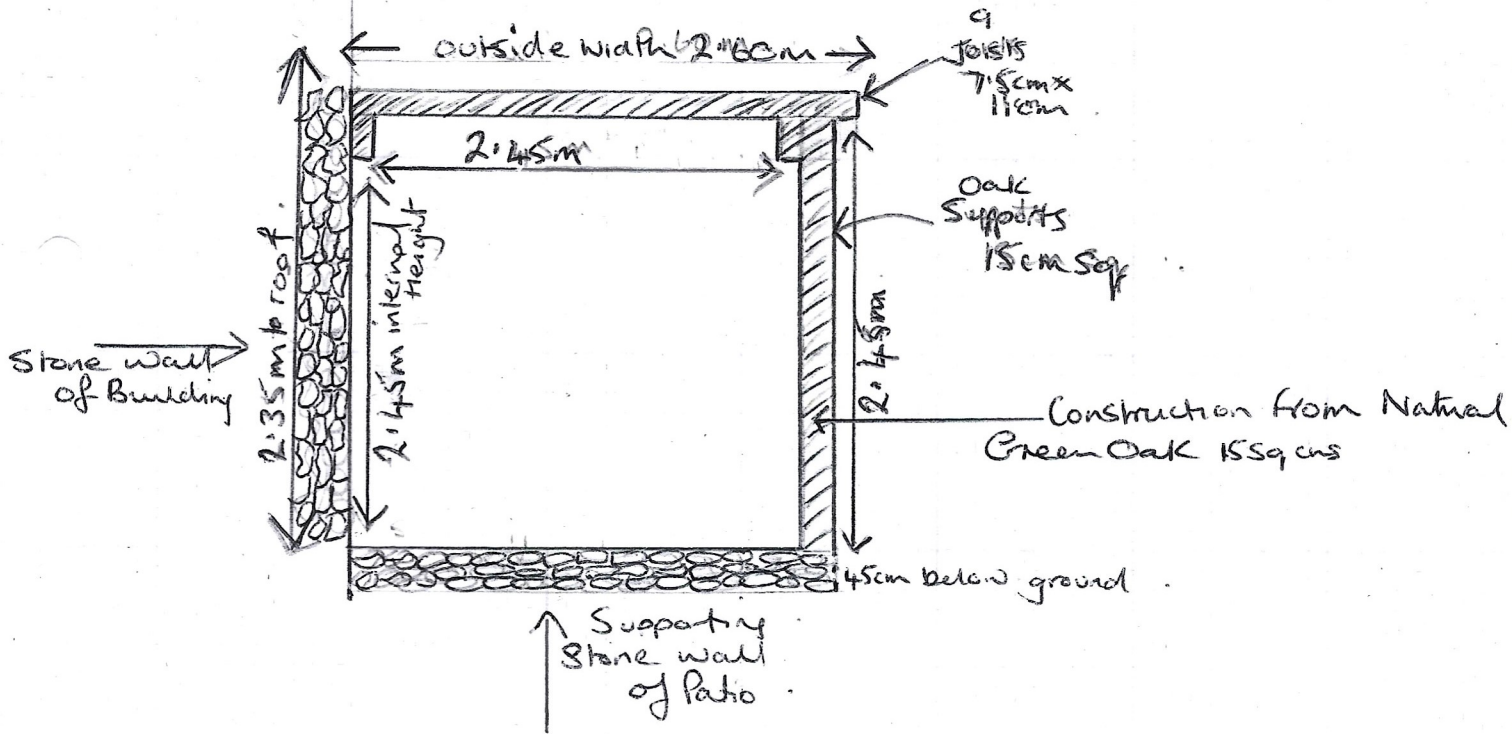 outside width 2.60m
9
Joists
7.5cm x
11cm
2.45m
Oak
Supports
15cm Sq
2.35m to roof
2.45m internal
Height
2.45m
Stone Wall
of Building
Construction from Natural
Green Oak 15 Sq cms
45cm below ground
Supporting
Stone wall
of Patio